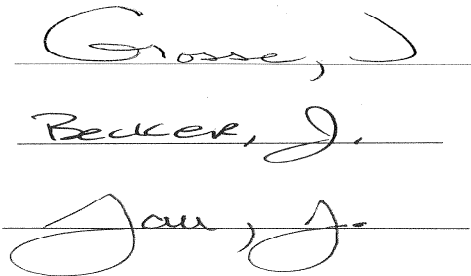 Grosse, J
Becker, J.
Jau, J.